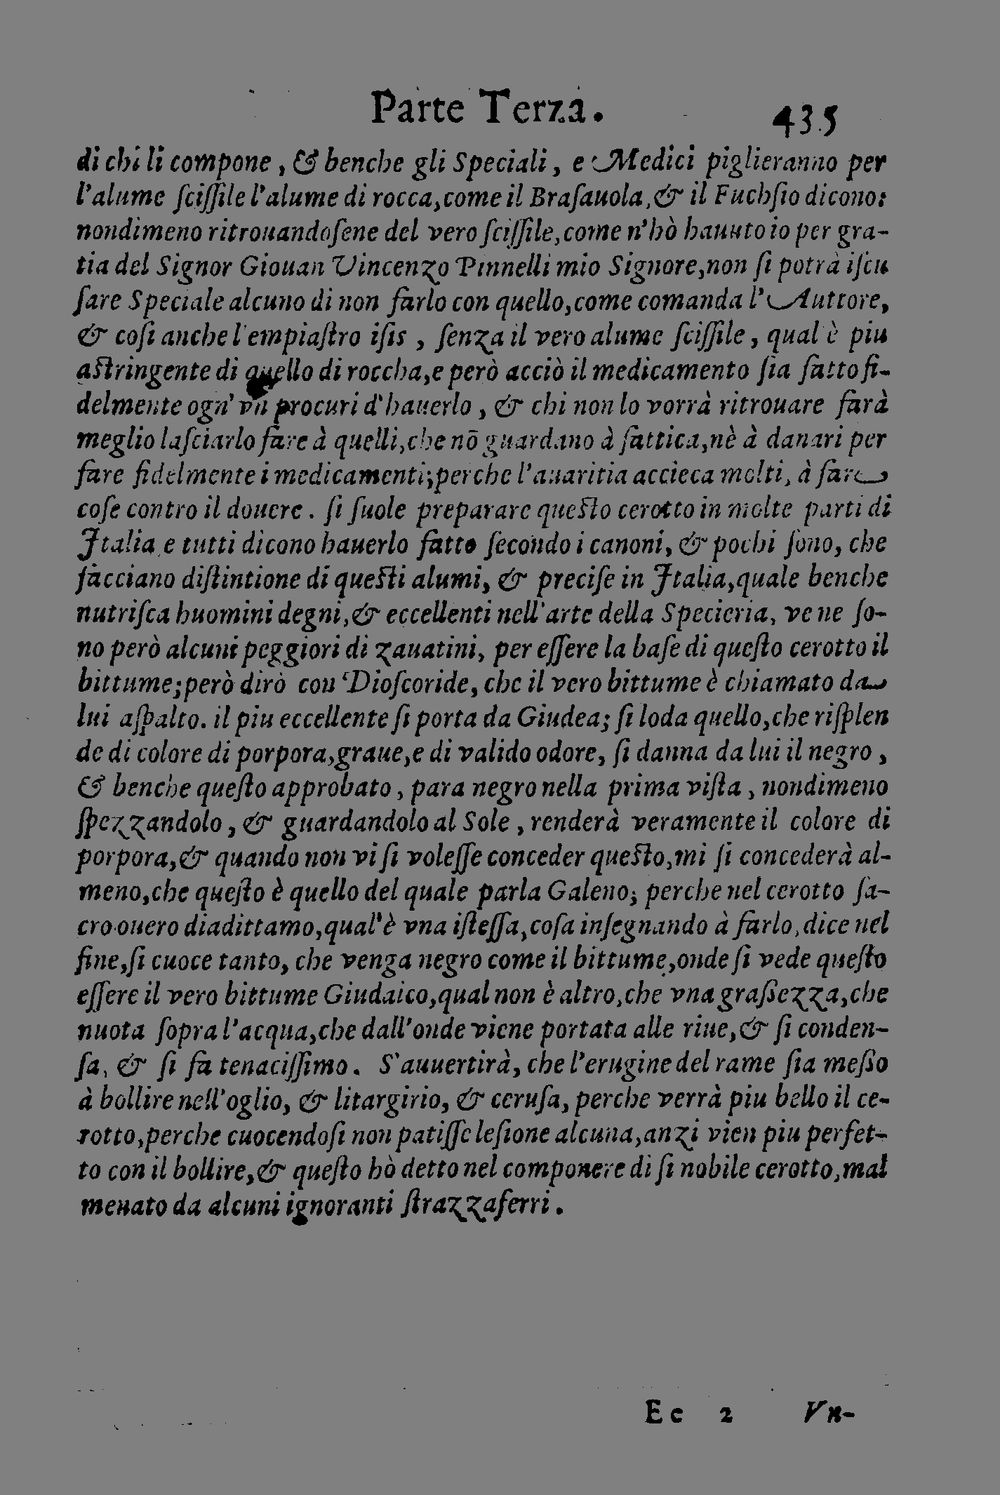 Parte Terza. 435
di chi li compone, & benche gli Speciali, e Medici piglieranno per
l'alume ſciſſile l'alume di rocca, come il Braſauola, & il Fuchſio dicono:
nondimeno ritrouandoſene del vero ſciſſile, come n'hò hauuto io per gra-
tia del Signor Giouan Vincenzo Pinnelli mio Signore, non ſi potrà iſcu
ſare Speciale alcuno di non farlo con quello, come comanda l'Auttore,
& coſi anche l'empiaſtro iſis, ſenza il vero alume ſciſſile, qual è piu
aſtringente di quello di roccha, e però acciò il medicamento ſia fatto fi-
delmente ogn' vn procuri d'hauerlo, & chi non lo vorrà ritrouare farà
meglio laſciarlo fare à quelli, che nō guardano à fattica, nè à danari per
fare fidelmente i medicamenti; perche l'auaritia accieca molti, à fare
coſe contro il douere. ſi ſuole preparare queſto cerotto in molte parti di
Italia e tutti dicono hauerlo fatto ſecondo i canoni, & pochi ſono, che
facciano diſtintione di queſti alumi, & preciſe in Italia, quale benche
nutriſca huomini degni, & eccellenti nell'arte della Specieria, ve ne ſo-
no però alcuni peggiori di zauatini, per eſſere la baſe di queſto cerotto il
bittume; però dirò con Dioſcoride, che il vero bittume è chiamato da
lui aſpalto. il piu eccellente ſi porta da Giudea; ſi loda quello, che riſplen
de di colore di porpora, graue, e di valido odore, ſi danna da lui il negro,
& benche queſto approbato, para negro nella prima viſta, nondimeno
ſpezzandolo, & guardandolo al Sole, renderà veramente il colore di
porpora, & quando non vi ſi voleſſe conceder queſto, mi ſi concederà al-
meno, che queſto è quello del quale parla Galeno; perche nel cerotto ſa-
cro ouero diadittamo, qual'è vna iſteſſa, coſa inſegnando à farlo, dice nel
fine, ſi cuoce tanto, che venga negro come il bittume, onde ſi vede queſto
eſſere il vero bittume Giudaico, qual non è altro, che vna graſſezza, che
nuota ſopra l'acqua, che dall'onde viene portata alle riue, & ſi conden-
ſa, & ſi fa tenaciſſimo. S'auuertirà, che l'erugine del rame ſia meſſo
à bollire nell'oglio, & litargirio, & ceruſa, perche verrà piu bello il ce-
rotto, perche cuocendoſi non patiſſe leſione alcuna, anzi vien piu perfet-
to con il bollire, & queſto hò detto nel componere di ſi nobile cerotto, mal
menato da alcuni ignoranti ſtrazzaferri.
Ee 2 Vn-